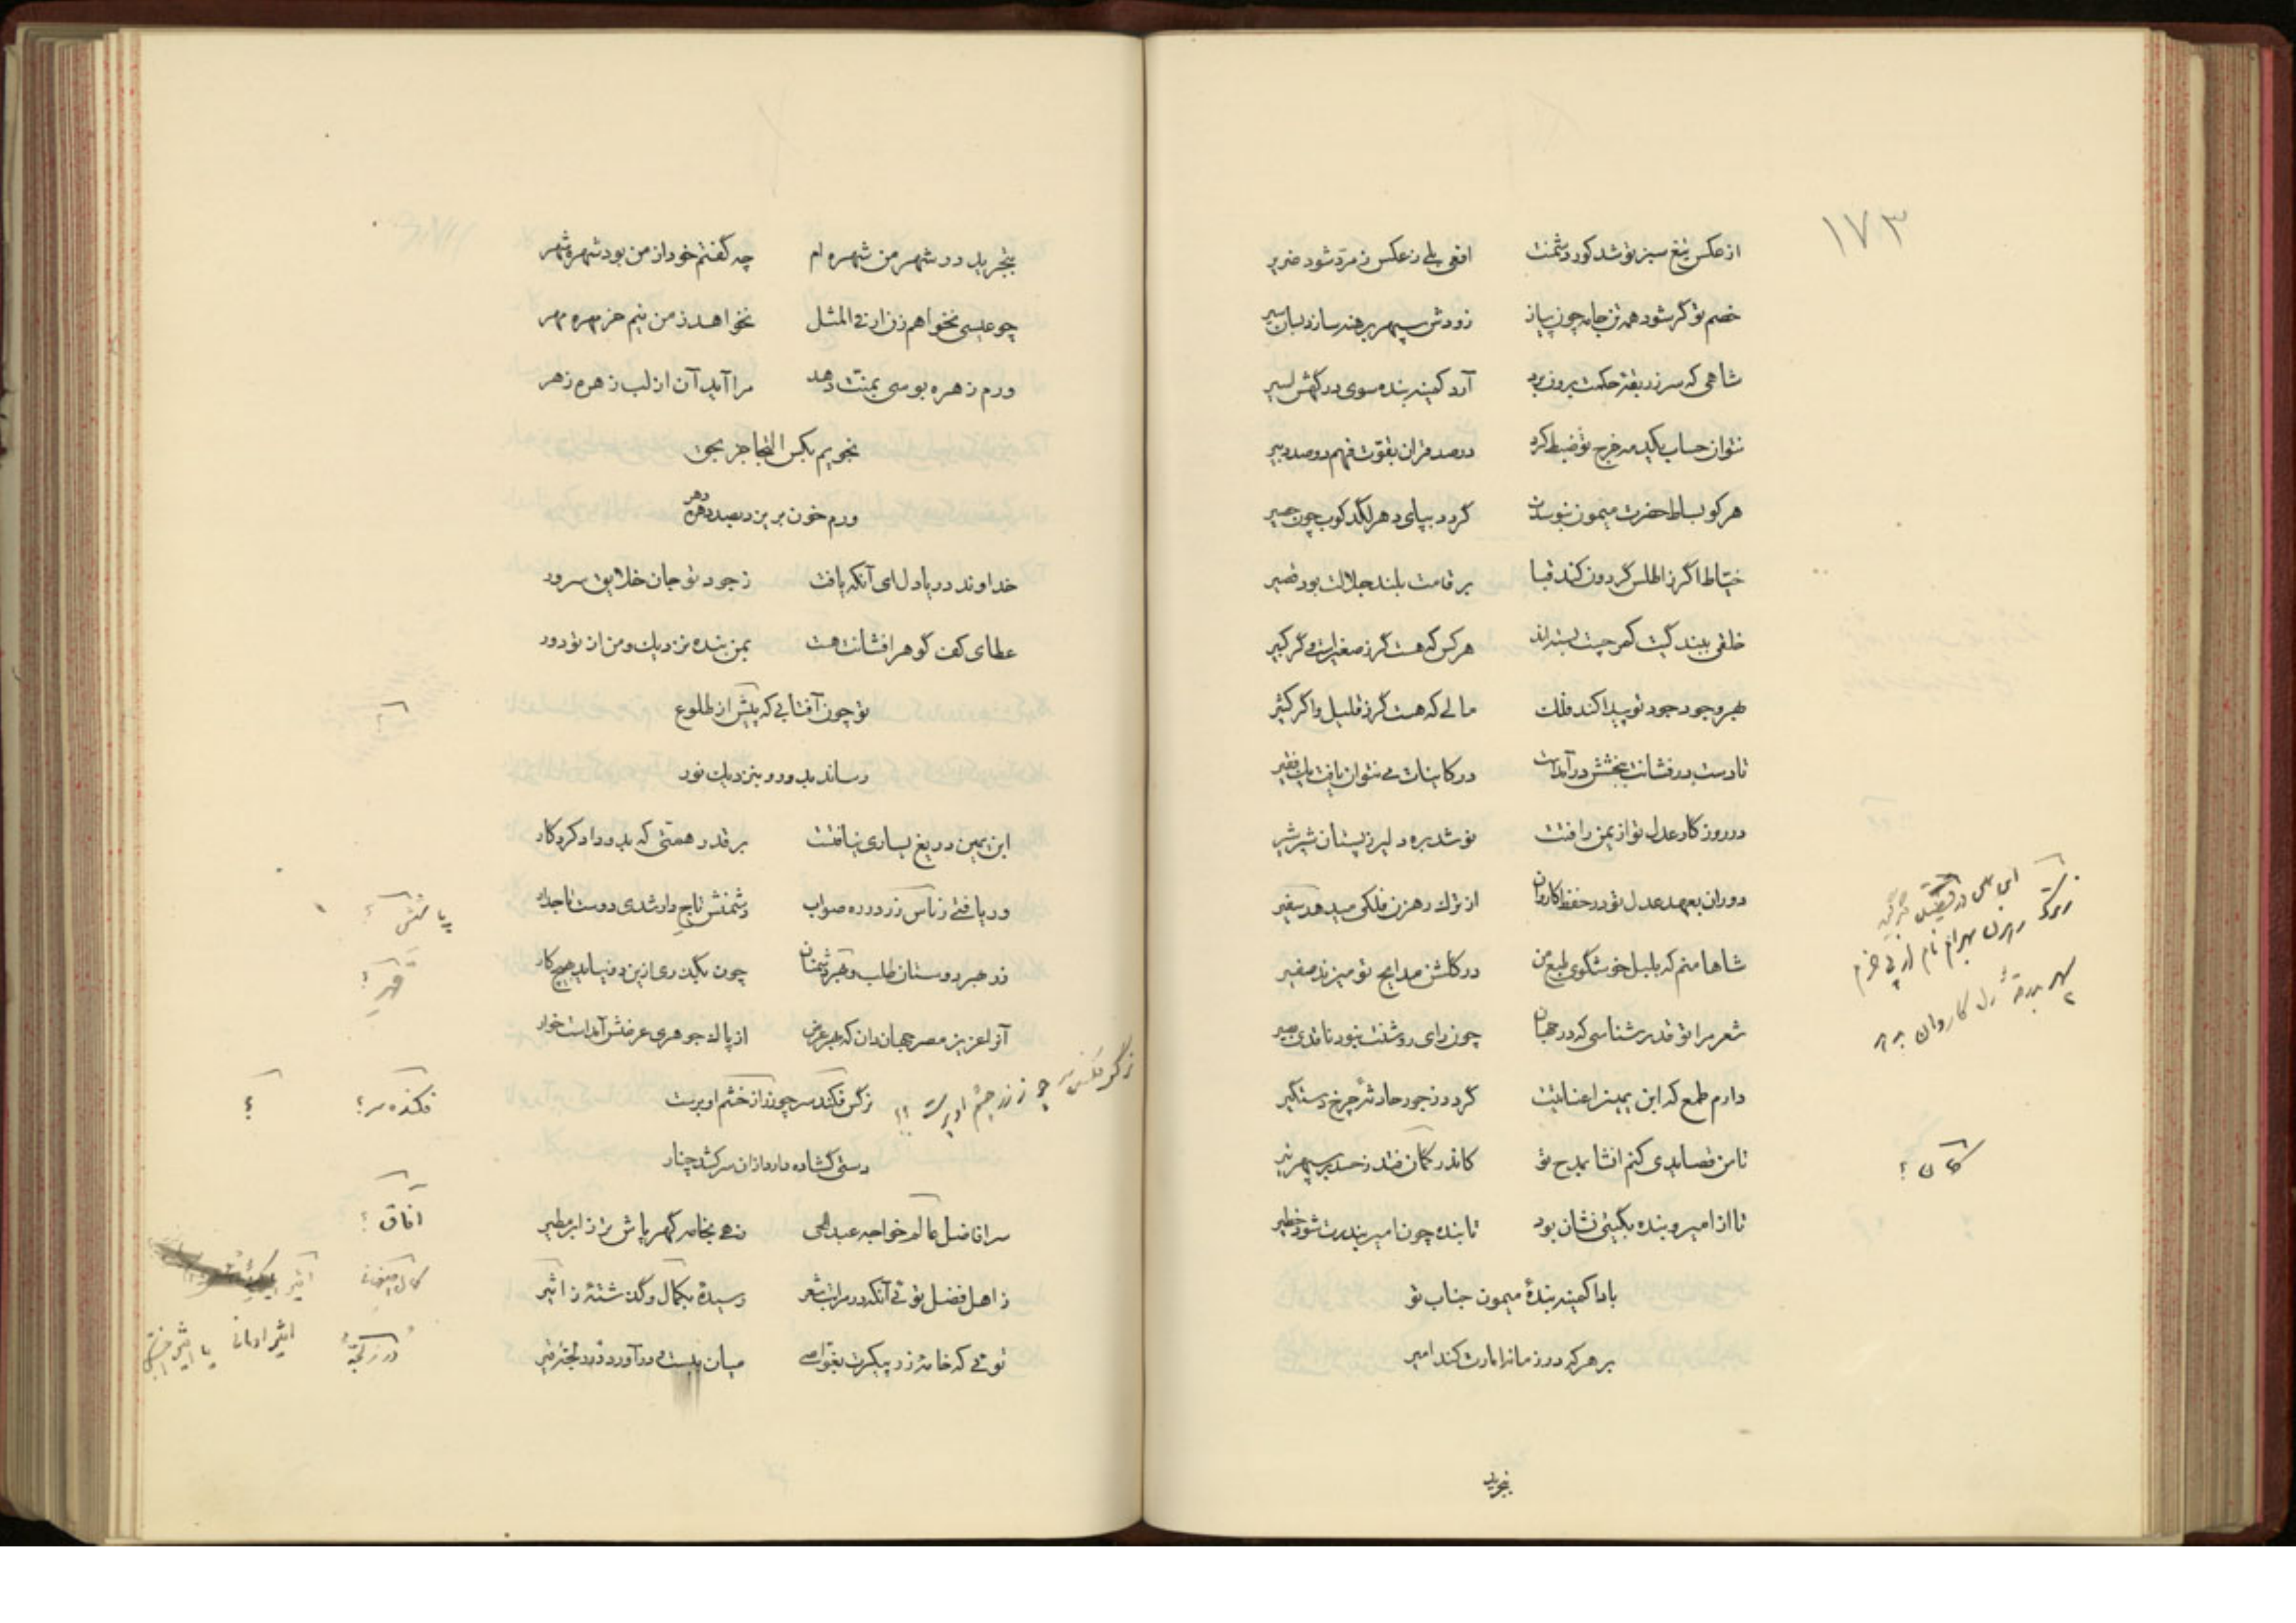 ۱۷۳
از عکس تیغ سبز تو شد کور دشمنت افعی بلی ز عکس زمرد شود ضریر
خصم تو گر شود همه تن جامه چون پیاز زودش سپهر برهنه سازد بسان سیر
شاهی که سر ز ربقهٔ حکمت برون برد آرد کمینه بنده سوی درگهش اسیر
نتوان حساب یکدمه خرج تو ضبط کرد درصد قران بقوت فهم دوصد دبیر
هر کو بساط حضرت میمون نبوسدت گردد بپای دهر لگدکوب چون حصیر
خیاط اگر ز اطلس گردون کند قبا بر قامت بلند جلالت بود قصیر
خلقی ببندگیت کمر چست بسته‌اند هر کس که هست گر ز صغیر است و گر کبیر
بهر وجود جود تو پیدا کند فلک مالی که هست گر ز قلیل و اگر کثیر
تا دست درفشانت ببخشش درآمدست در کاینات می نتوان یافت یک فقیر
در روزگار عدل تو از یمن رافتت نوشد بره دلیر ز پستان شیر شیر
دوران بعهد عدل تو در حفظ کاروان از ترک رهزن فلکی میدهد سفیر
شاها منم که بلبل خوشگوی طبع من در گلشن مدایح تو میزند صفیر
شعر مرا تو قدر شناسی که در جهان چون رای روشنت نبود ناقدی بصیر
دارم طمع که ابن یمین را عنایتت گردد ز جور حادثهٔ چرخ دستگیر
تا من قصایدی کنم انشا بمدح تو کاندر گمان فتد ز حسد بر سپهر تیر
تا از امیر و بنده بگیتی نشان بود تا بنده چون امیر بندرت شود خطیر
بادا کمینه بندهٔ میمون جناب تو
بر هر که در زمانه امارت کند امیر
بخرید
ترک رهزن بهرام نام از پی حزم
بدرقهٔ کاروان
کمان ؟
بنجریه در شهر من شهره ام چه گفتم خود از من بود شهره شهر
چو عیسی نخواهم زن ار فی المثل نخواهد ز من نیم خرمهره مهر
ورم زهره بوسی بمنت دهد مرا آید آن از لب زهره زهر
نجویم بکس التجا جز بحق
ورم خون بریزد بصد دهره دهر
خداوند دریادل ای آنکه یافت ز جود تو جان خلایق سرور
عطای کف گوهر افشانت هست بمن بنده نزدیک و من از تو دور
تو چون آفتابی که پیش از طلوع
رساند بدور و بنزدیک نور
؟
ابن یمین دریغ یساری نیافتت بر قدر همتی که بدو داد کردگار
ور یافتی ز ناس زر در ره صواب دشمنش تاج دار شدی دوست تاجدار
یافتش ؟
زر جبر دوستان طلب و قهر دشمنان چون بگذری ازین دو نیاید هیچ کار
قهر ؟
آنرا عزیز مصر جهان دان که بهر عرض از پاک جوهری عرضش آمدست خوار
نرگس فکند سر چو زر از خشم او برست
فکنده سر ؟
؟
دستی گشاده دارد از آن سر کشد چنار
سر افاضل عالم خواجه عبدالحی زهی بخامه گهر پاش تر ز ابر مطیر
آفاق ؟
ز اهل فضل توئی آنکه در مراتب شعر رسیدهٔ بکمال و گذشتهٔ ز اثیر
کمال اصفهانی
اثیر
توئی که خامهٔ زرد پیکرت بغواصی میان ببست و درآورد در لجهٔ قیر
اثیر اومانی یا اثیر اخسیکتی